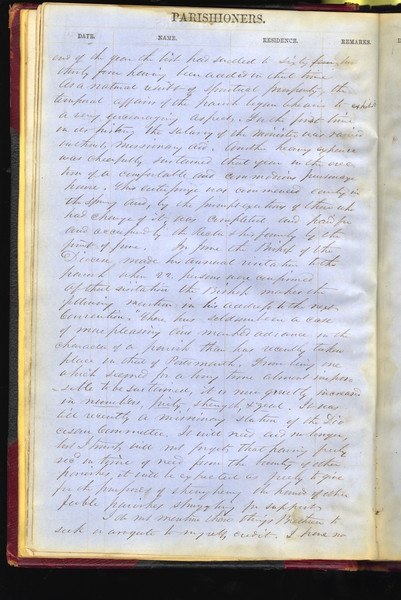 PARISHIONERS.
DATE. NAME. RESIDENCE. REMARKS.
end of the year the list had swelled to sixty four, 
thirty four having been added in that time
As a natural result of spiritual prosperity, the
temporal affairs of the parish began again to exhibit
a very encouraging aspect. For the first time
in its history the salary of the minister was raised
without Missionary aid. Another heavy expense
was cheerfully sustained that year in the erec
tion of a comfortable and commodious parsonage
house. This enterprise was commenced early in
the Spring and, by the prompt action of those who
had charge of it, was completed and paid for
and occupied by the Rector & his family by the
first of June. In June the Bishop of the
Diocese made his annual visitation to the
parish when 22 persons were confirmed
Of this visitation the Bishop makes the
pleasing mention in his address to the next
Convention. "There has seldom been a case
of more pleasing and marked advance in the
character of a parish than has recently taken
place in that of Portsmouth. From being one
which seemed for a long time almost impos
sible to be sustained, it is now greatly increased
in numbers, unity, strength, & zeal. It was
till recently a missionary station of the Dio
cesan Committee. It will need aid no longer,
but I trust, will not forget, that having freely
rec'd in time of need from the bounty of other
parishes, it will be expected as freely to give
for the purpose of strengthening the hands of other
feeble parishes struggling for support.
I do not mention these things Brethren to
seek or arrogate to myself credit. I have no